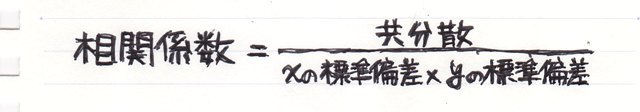 相関係数 = 共分散
xの標準偏差 × yの標準偏差